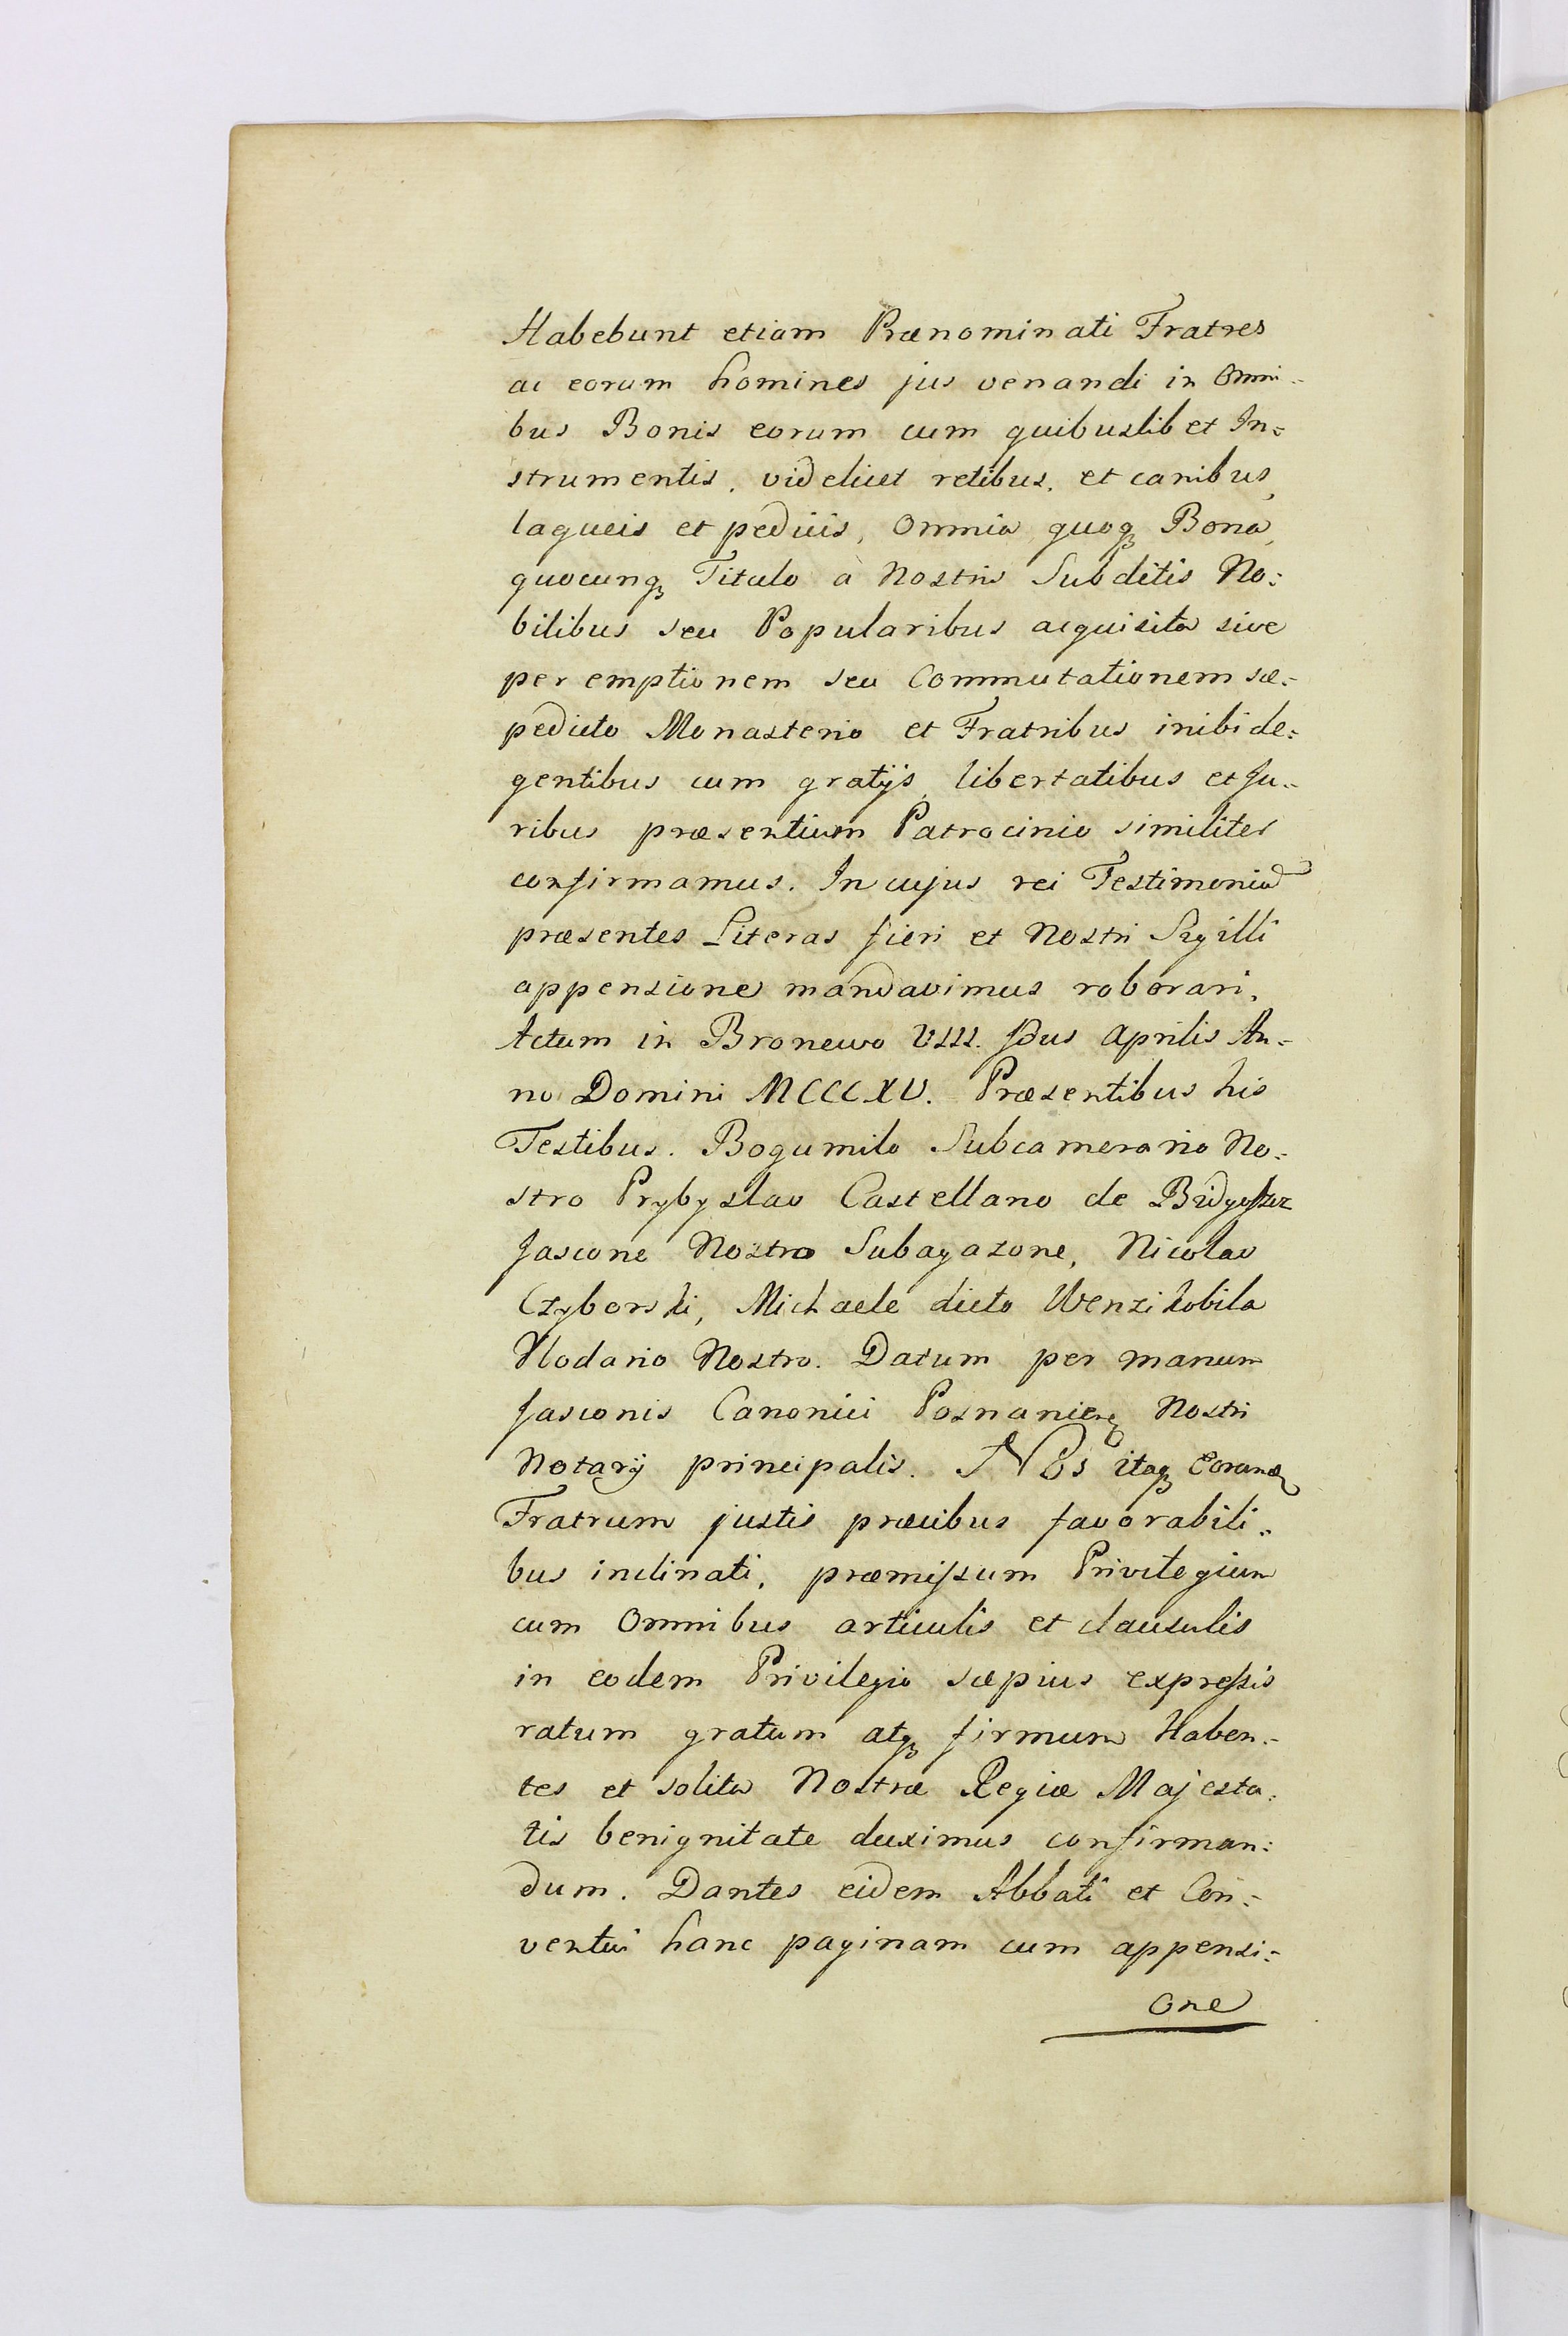 Habebunt etiam Prænominati Fratres
ac eorum homines jus venandi in Omni-
bus Bonis eorum cum quibuslibet In=
strumentis, videlicet retibus, et canibus,
laqueis et pedicis, Omnia quoqꝫ Bona,
quocunqꝫ Titulo à Nostris Subditis No:
bilibus seu Popularibus acquisita sive
per emptionem seu Commutationem sæ=
pedicto Monasterio et Fratribus inibi de:
gentibus cum gratijs, libertatibus et Ju=
ribus præsentium Patrocinio similiter
confirmamus. In cujus rei Testimoniũ
præsentes Literas fieri et Nostri Sigilli
appensione mandavimus roborari.
Actum in Bronewo VIII. Jdus Aprilis An=
no Domini MCCCXV. Præsentibus his
Testibus. Bogumilo Subcamerario No=
stro Prybyslao Castellano de
Jascone Nostro Subagazone, Nicolao
Czyborski, Michaele dicto Wenzikobila
Vlodario Nostro. Datum per manum
Jasconis Canonici Posnanien̄ Nostri
Notarij principalis. NOs itaqꝫ
Fratrum justis præcibus favorabili=
bus inclinati, præmissum Privilegium
cum Omnibus articulis et clausulis
in eodem Privilegio sæpius expressis
ratum gratum atqꝫ firmum Haben=
tes et solita Nostræ Regiæ Majesta:
tis benignitate duximus confirman:
dum. Dantes eidem Abbati et Con=
ventui hanc paginam cum appensi=
one